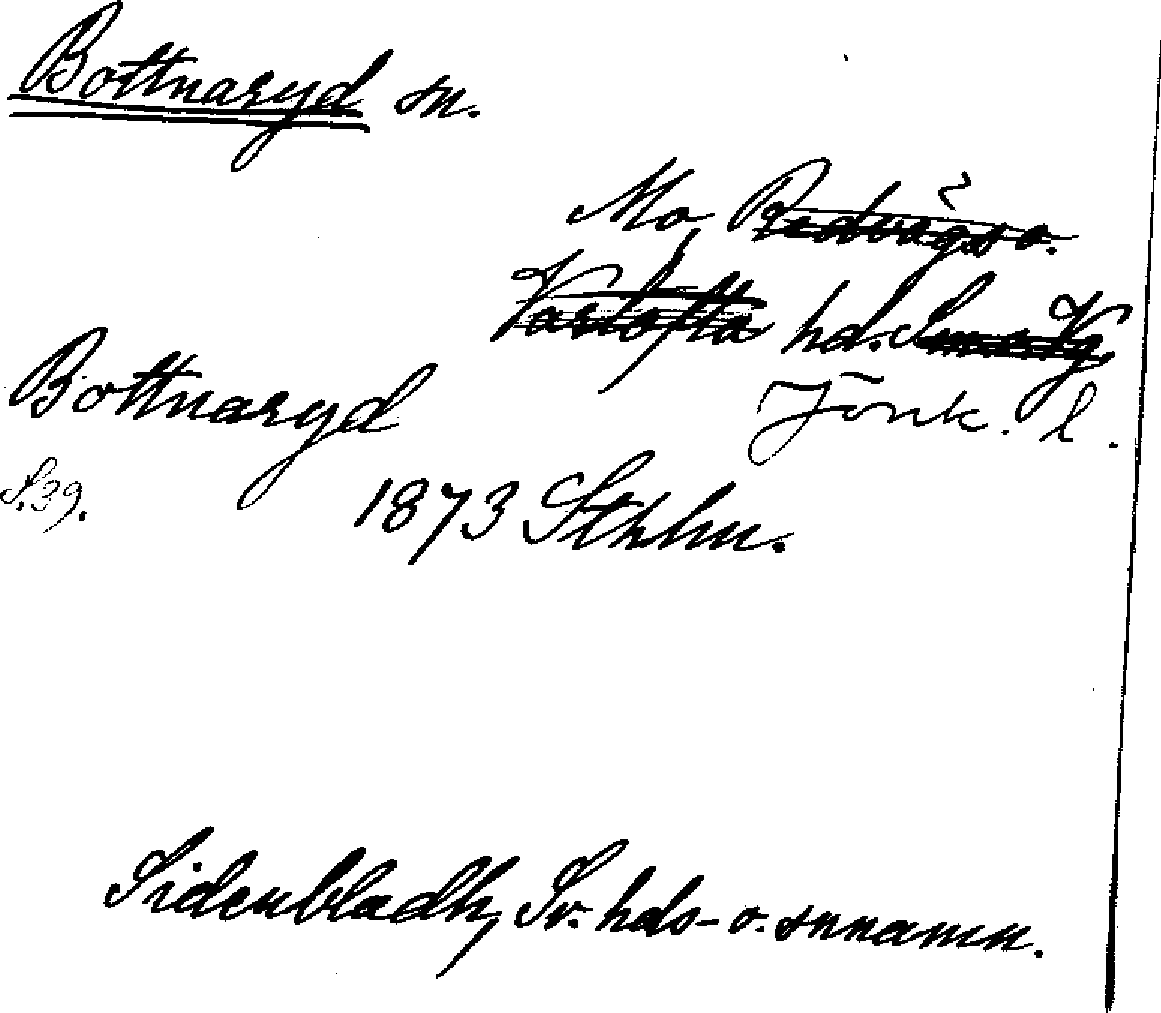 Bottnaryd sn.
Mo Redvägs o.
Vartofta hd. Sm. o. Vg
Bottnaryd
Jönk. l.
S. 39.
1873 Sthlm.
Sidenbladh, Sv. hds- o. snnamn.